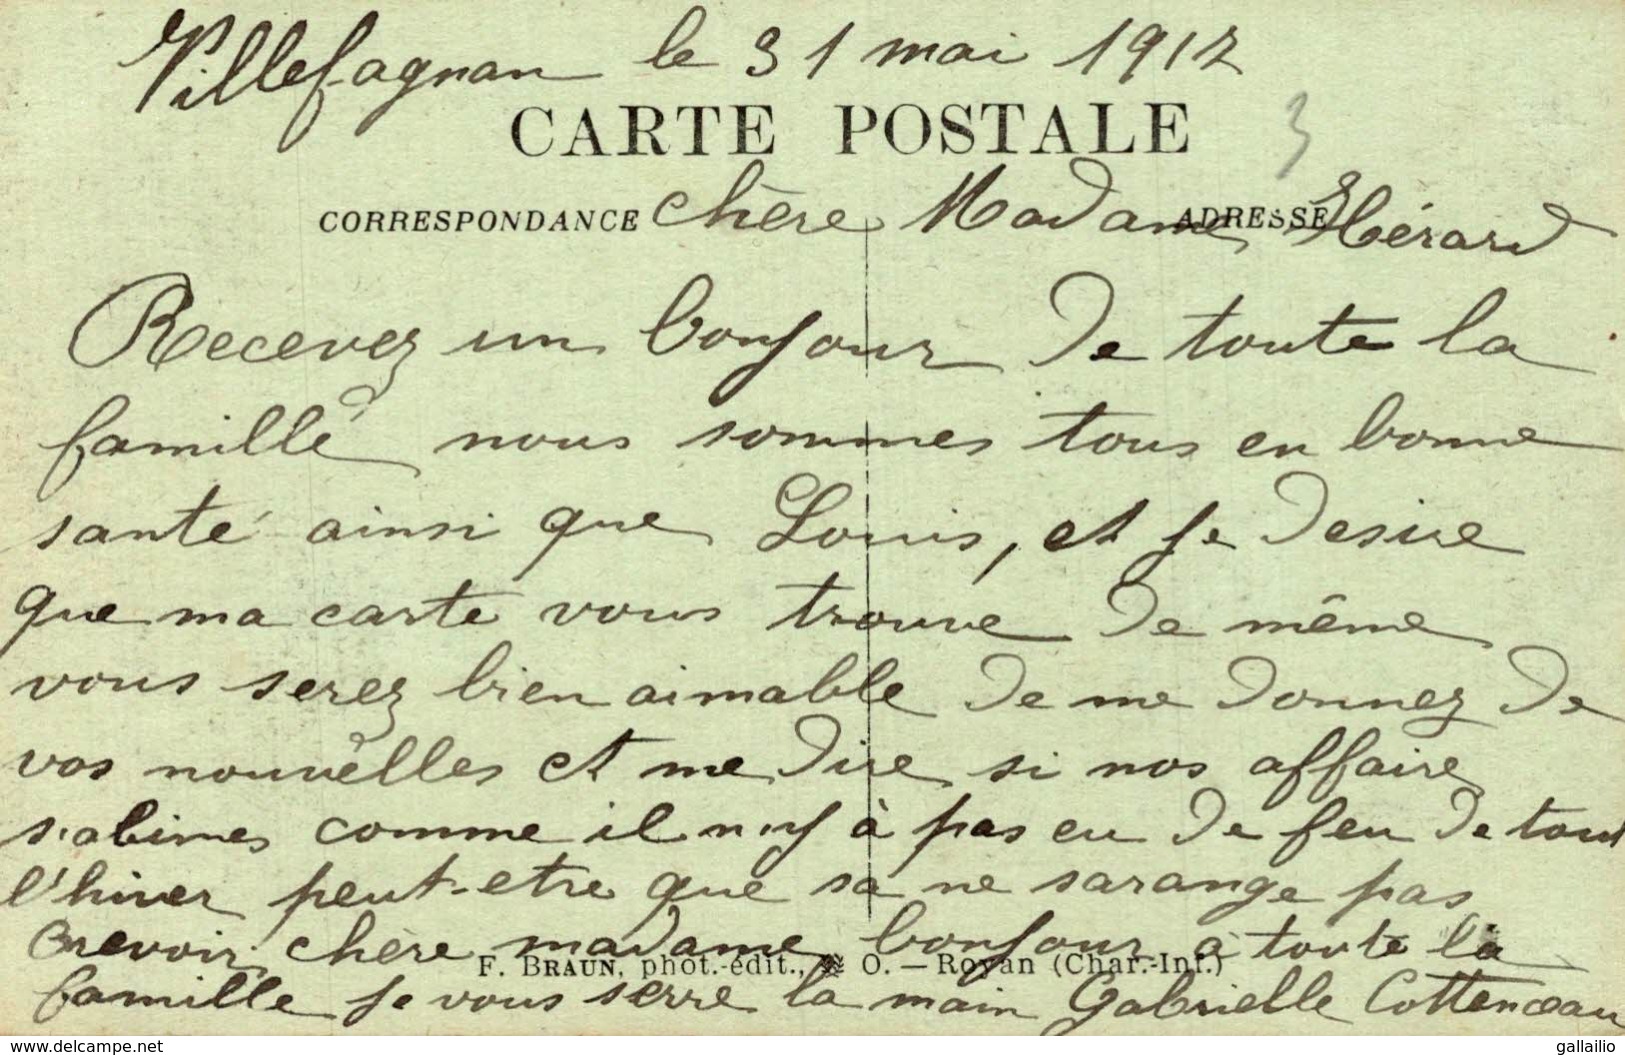 Villefagnan le 31 mai 1912
CARTE POSTALE
3
CORRESPONDANCE chère Madame ADRESSE Hérard
Recevez un bonjour de toute la
famille nous sommes tous en bonne
santé ainsi que Louis, et je desire
que ma carte vous trouve de même
vous serez bien aimable de me donnez de
vos nouvelles et me dire si nos affaire
s'abimes comme il n'y à pas eu de feu de tout
l'hiver peut-etre que sa ne sarange pas
orevoir chère madame bonjour à toute la
F. BRAUN, phot.-édit., O. — Royan (Char.-Inf.)
famille je vous serre la main Gabrielle Cottenceau
https://www.delcampe.net
gallailio